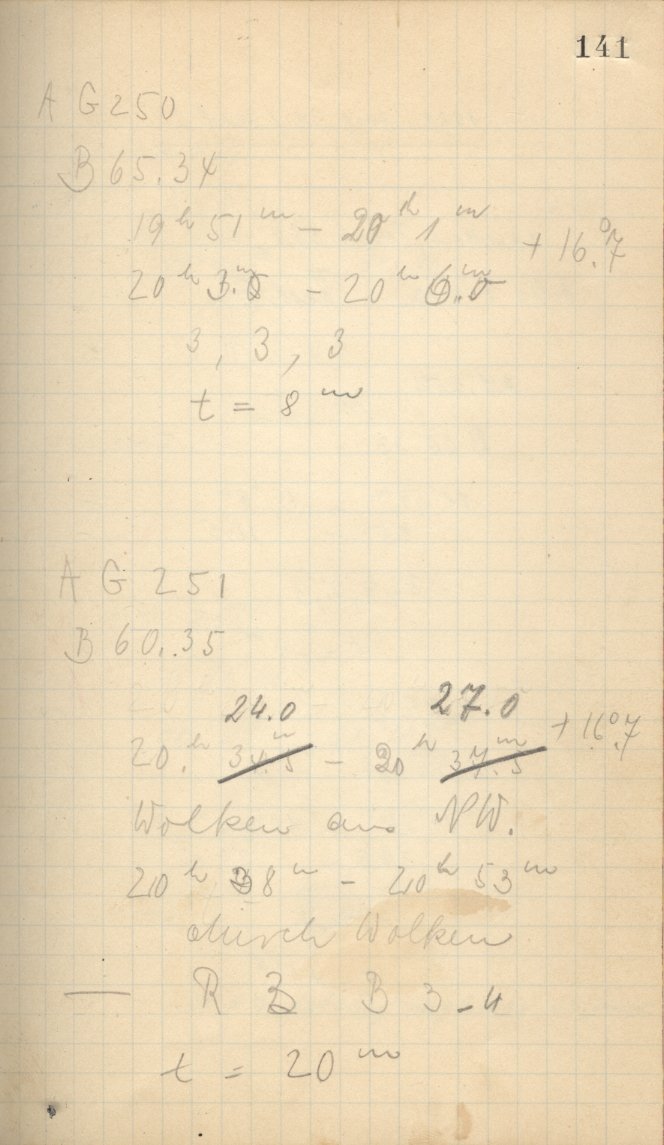 141
A G 250
B 65.34
19ʰ 51ᵐ – 20ʰ 1ᵐ + 16.°7
20ʰ 3.ᵐ0 – 20ʰ 6.ᵐ0
3, 3, 3
t = 8ᵐ
A G 251
B 60.35
24.0 27.0
20.ʰ 34.ᵐ5 – 20ʰ 37.ᵐ5 + 16.°7
Wolken aus NW.
20ʰ 38ᵐ – 20ʰ 53ᵐ
durch Wolken
— R 3 B 3-4
t = 20ᵐ